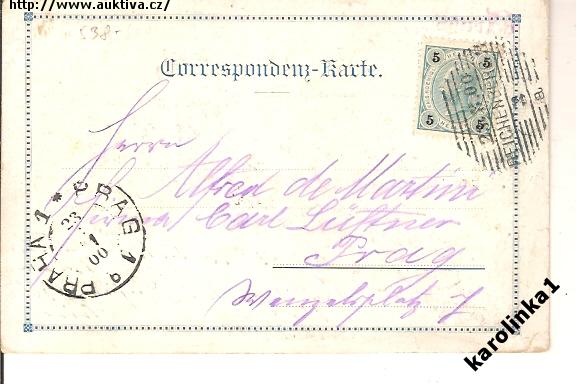 http://www.auktiva.cz/
538-
Correspondenz-Karte.
5 5
5 5
Herrn
Alfred de Martini
Firma Carl Lüftner
Prag
Wenzelsplatz 7
PRAG 1 * PRAHA 1
23
1
00
karolinka1